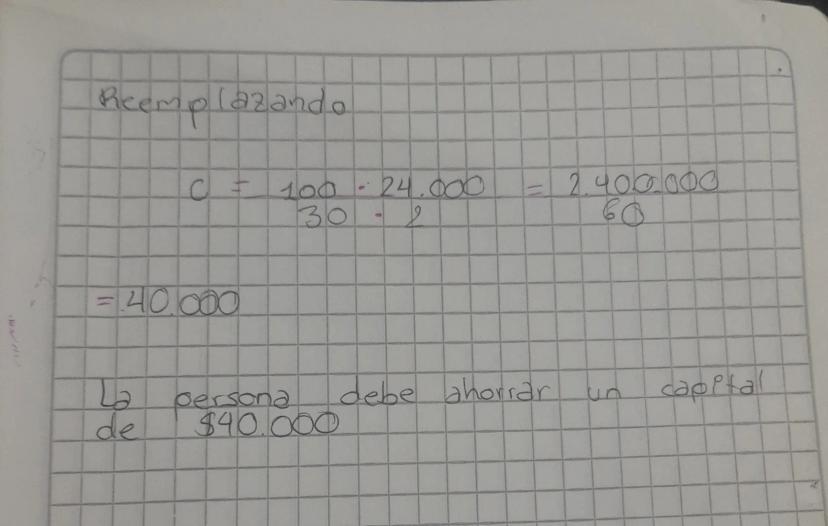 Reemplazando
C = 100 · 24.000 = 2.400.000
30 · 2 60
= 40.000
La persona debe ahorrar un capital
de $40.000